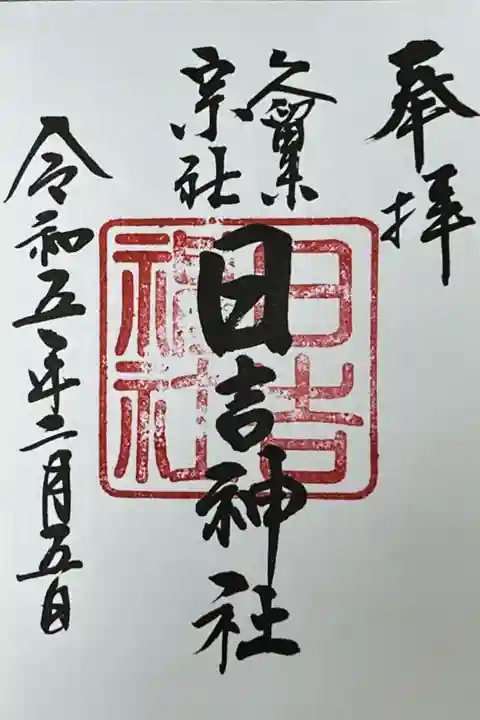 奉拝
久留米
宗社
日吉神社
日吉
神社
令和五年二月五日